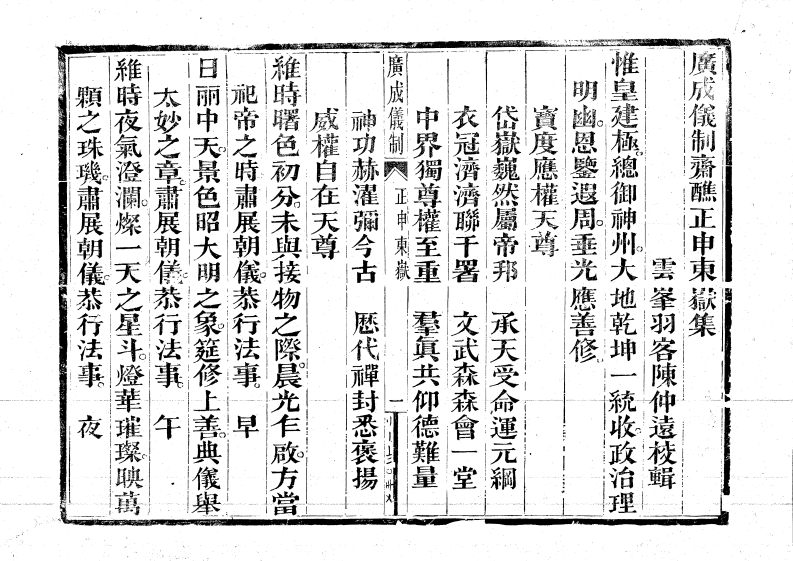 廣成儀制齋醮正申東嶽集
雲峯羽客陳仲遠校輯
惟皇建極。總御神州。大地乾坤一統。收政治理
明幽恩鑒遐周。垂光應善修
寶度應權天尊
岱嶽巍然屬帝邦 承天受命運元綱
衣冠濟濟聯千署 文武森森會一堂
中界獨尊權至重 羣眞共仰德難量
神功赫濯彌今古 歷代禪封悉褒揚
廣成儀制 正申東嶽 一
威權自在天尊
維時曙色初分。未與接物之際。晨光乍啟。方當
祀帝之時。肅展朝儀。恭行法事。 早
日丽中天。景色昭大明之象。筵修上善。典儀舉
太妙之章。肅展朝儀。恭行法事。 午
維時夜氣澄瀾。燦一天之星斗。燈華璀璨。映萬
顆之珠璣。肅展朝儀。恭行法事。 夜